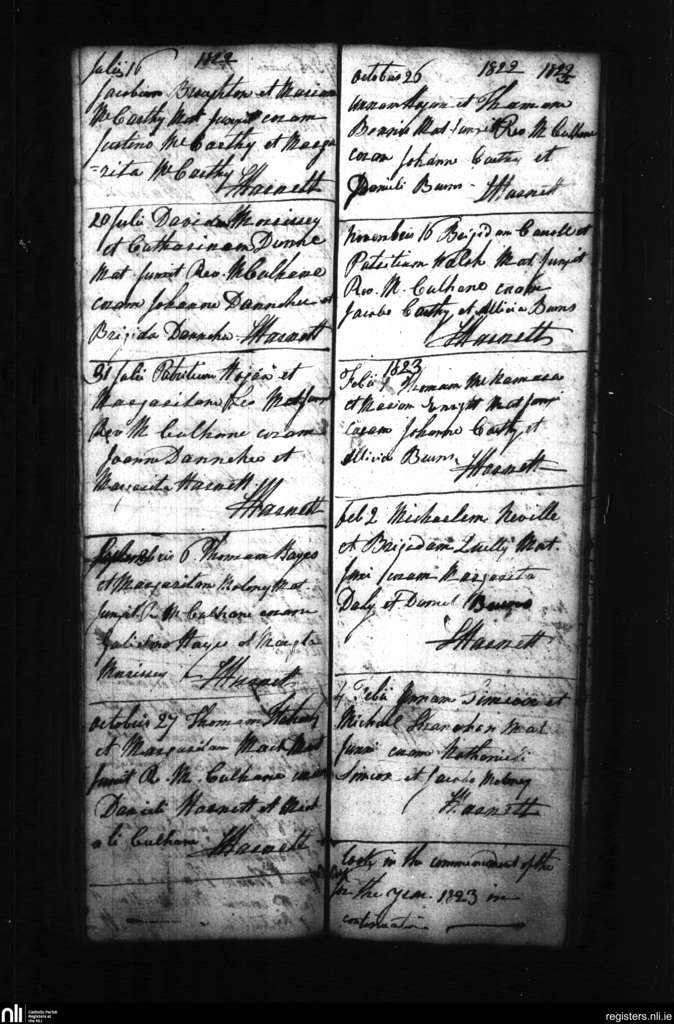 Julii 16 1822
Jacobum Broughton et Mariam
McCarthy Mat Junxit coram
Justino McCarthy et Marga
=rita McCarthy
JHarnett
20 Julii Davidem Morrissey
et Catharinam Dunne
Mat Junxit Rev. M Culhane
coram Johanne Danneher et
Brigida Danneher JHarnett
31 Julii Patritium Hogan et
Margaritam Mat Junx
Rev M Culhane coram
Joanne Danneher et
Margarita Harnett
JHarnett
6 Thomam Hayes
et Margaritam Molony Mat
Junxit R M Culhane coram
Gulielmo Hayes et Margta
Morissey JHarnett
Octobris 27 Thomam
et Margaritam Mack Mat
Junxit R. M. Culhane coram
Danieli Harnett et Mich
=li Culhane JHarnett
Octobris 26 1822 1822
Annam Hogan et Thomam
Mat Junxit Rev. M Culhane
coram Johanne Carthy et
Danieli Burns - JHarnett
Novembris 16 Brigidam Carroll et
Patritium Walsh Mat Junxit
Rev. M. Culhane coram
Jacobo Carthy et Alicia Burns
JHarnett
1823
Febii Thomam McNamara
et Mariam Enright Mat Junxi
Coram Johanne Carthy et
Alicia Burns JHarnett
Feb 2 Michaelem Neville
et Brigidam Mat.
Junxi coram Margarita
Daly et Daniel Burns
JHarnett
4 Febii Annam Simcox et
Michael Shanahan Mat
Junxi coram
Simcox et Jacobo Moloney
JHarnett
in the commencement of the
for the year 1823 in
continuation
nli
Catholic Parish
Registers at
the NLI
registers.nli.ie